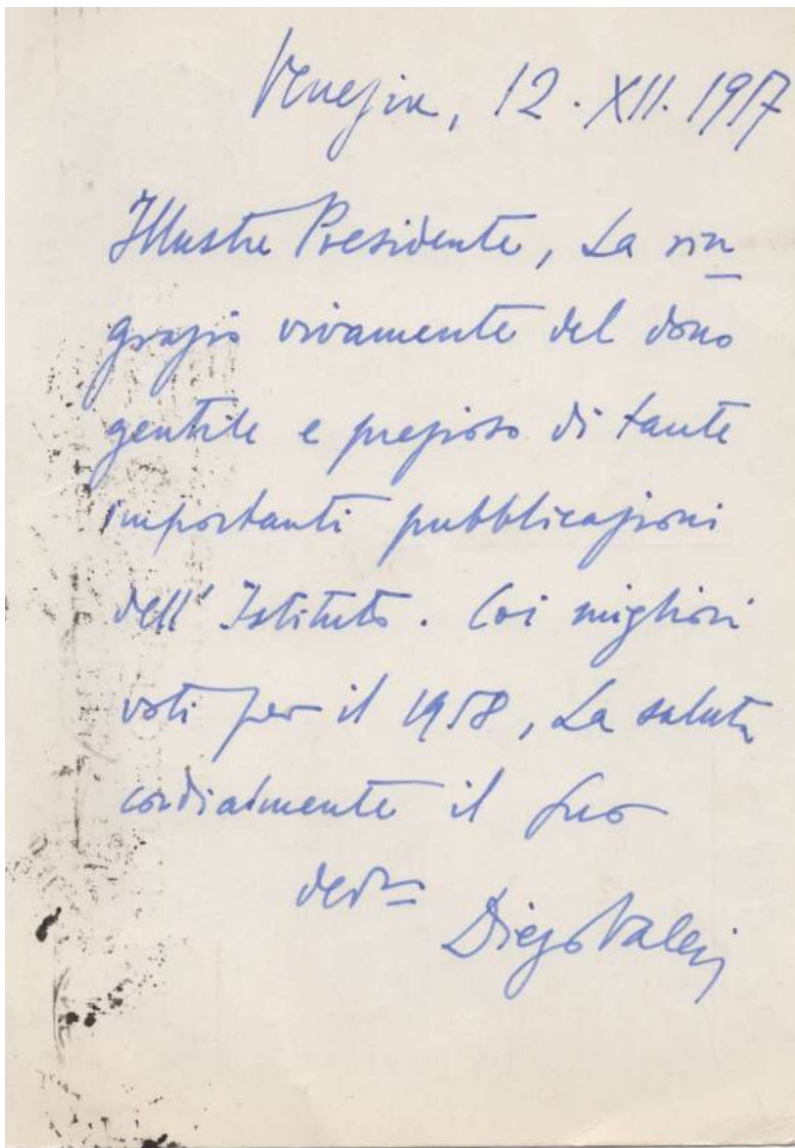 Venezia, 12. XII. 1957
Illustre Presidente, La rin
grazio vivamente del dono
gentile e prezioso di tante
importanti pubblicazioni
dell' Istituto. Coi migliori
voti per il 1958, La saluta
cordialmente il Suo
dev.mo
Diego Valeri